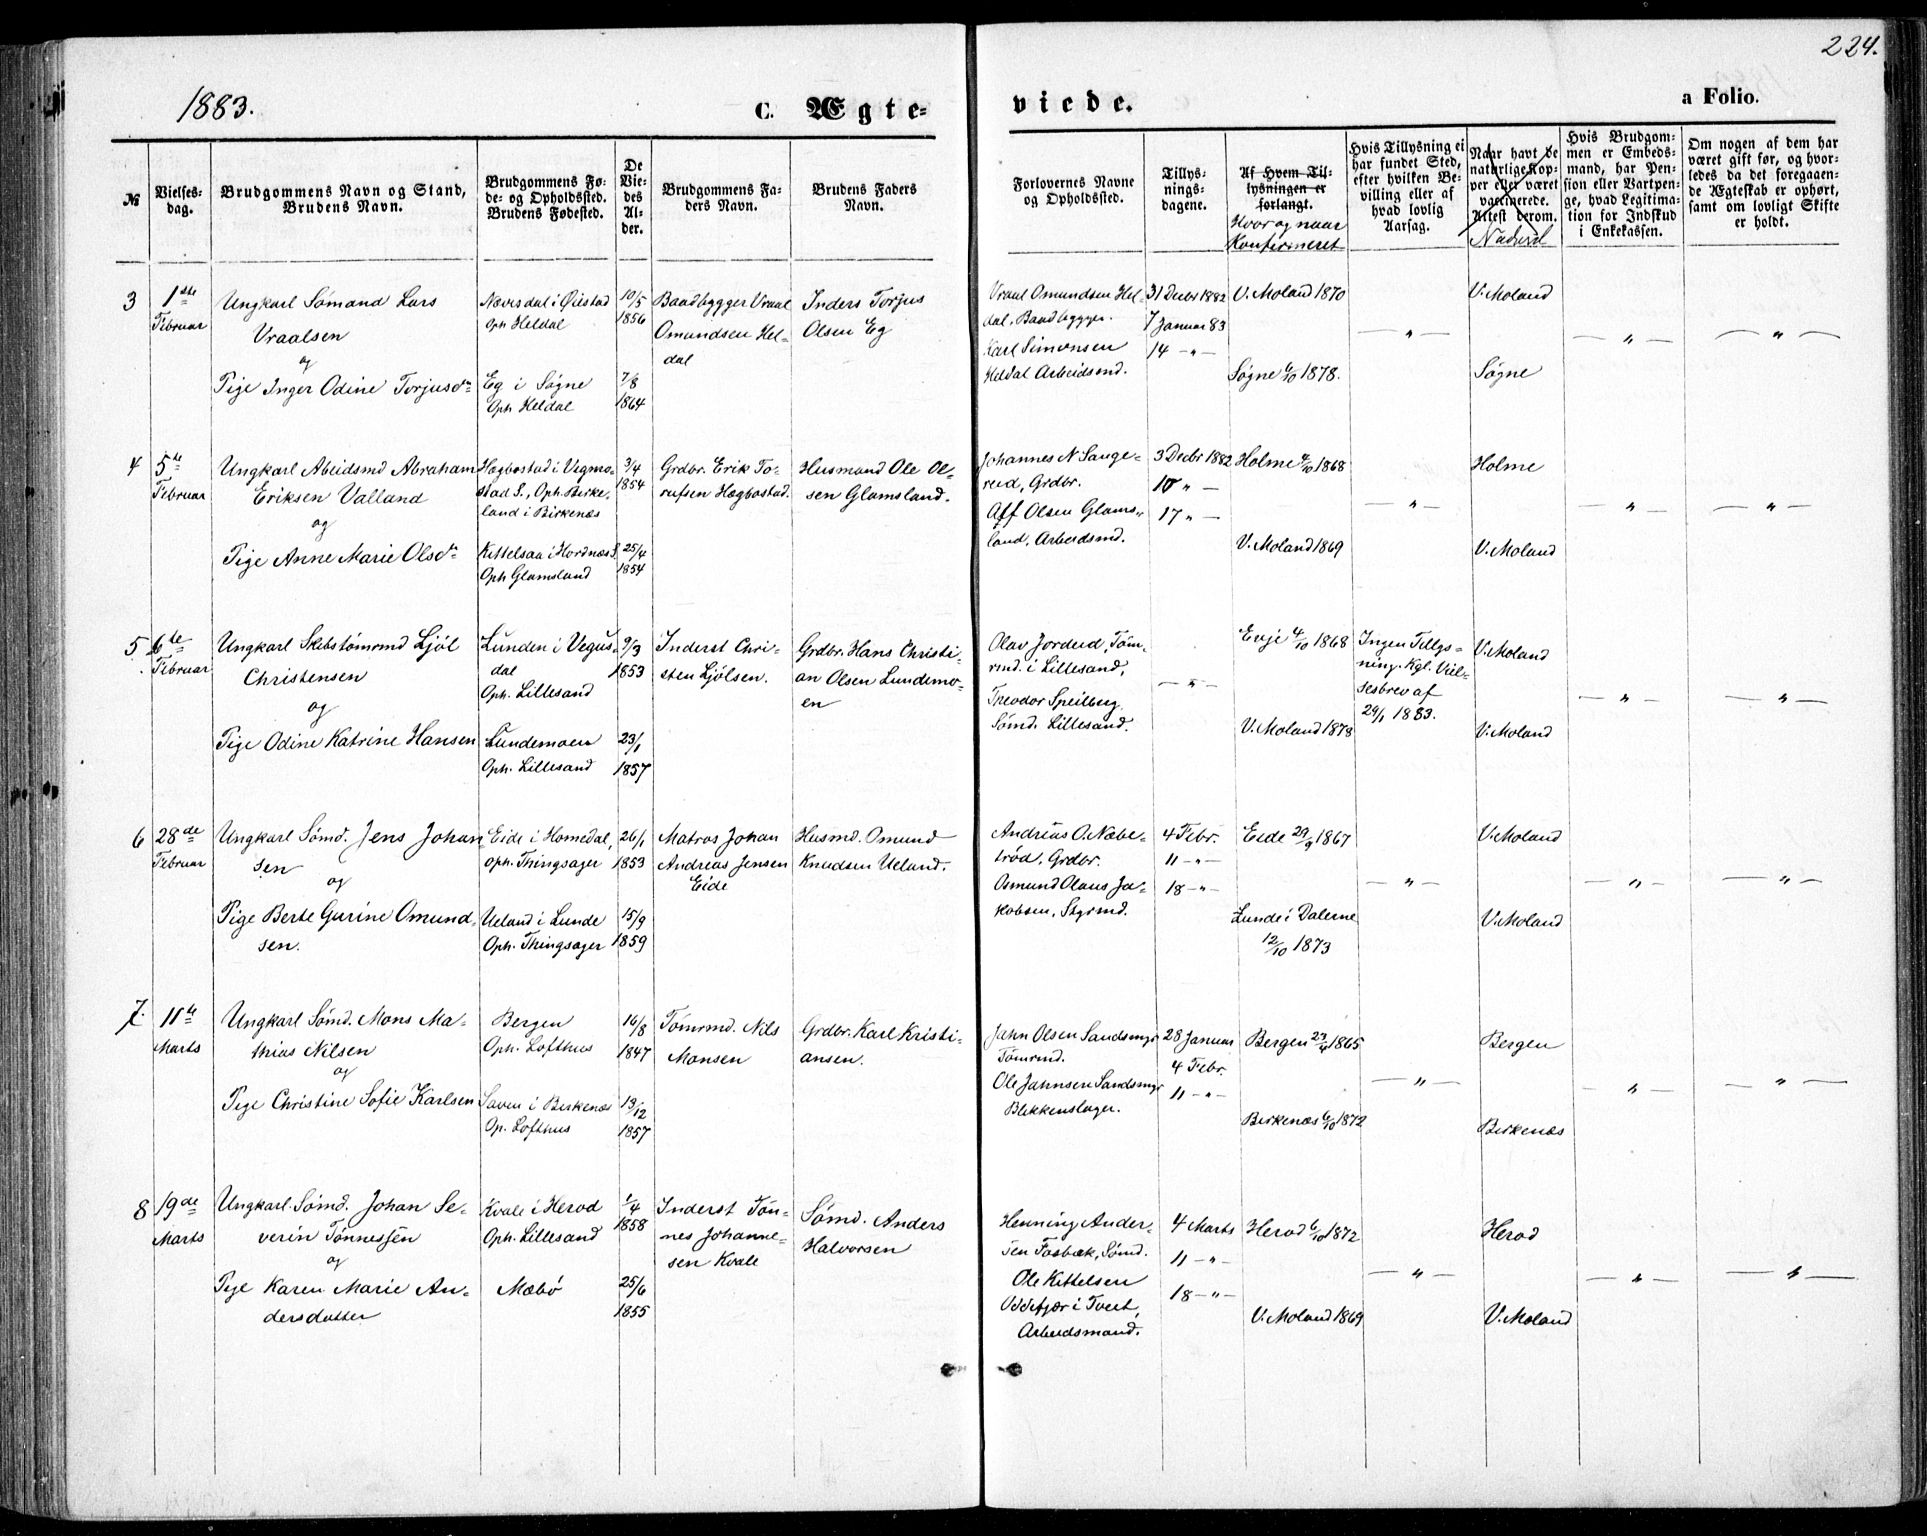 224.
1883.
C. Ægte-
viede.
a Folio.
№
Vielses-
dag.
Brudgommens Navn og Stand,
Brudens Navn.
Brudgommens Fø-
de- og Opholdssted.
Brudens Fødested.
De
Vie-
des
Al-
der.
Brudgommens Fa-
ders Navn.
Brudens Faders
Navn.
Forlovernes Navne
og Opholdssted.
Tillys-
nings-
dagene.
Af Hvem Til-
lysningen er
forlangt.
Hvor og naar
Konfirmeret
Hvis Tillysning ei
har fundet Sted,
efter hvilken Be-
villing eller af
hvad lovlig
Aarsag.
Naar havt de
naturlige Kop-
per eller været
vaccinerede.
Attest derom.
Nadverd
Hvis Brudgom-
men er Embeds-
mand, har Pen-
sion eller Vartpen-
ge, hvad Legitima-
tion for Indskud
i Enkekassen.
Om nogen af dem har
været gift før, og hvor-
ledes da det foregaaen-
de Ægteskab er ophørt,
samt om lovligt Skifte
er holdt.
3
1ste
Februar
Ungkarl Sømand Lars
Vraalsen
og
Pige Inger Odine Torjusdr
Nævesdal i Øiestad
Oph Heldal
Eg i Søgne
Oph Heldal
10/5
1856
7/8
1864
Baadbygger Vraal
Omundsen Hel-
dal
Inders Torjus
Olsen Eg
Vraal Omundsen Hel-
dal, Baadbygger.
Karl Simonsen
Heldal Arbeidsmd.
31 Decbr 1882
7 Januar 83
14 — " —
V. Moland 1870
Søgne 6/10 1878.
— " —
V. Moland
Søgne
— " —
— " —
4
5te
Februar
Ungkarl Abeidsmd Abraham
Eriksen Valland
og
Pige Anne Marie Olsdr
Hægbostad i Vegmo-
stad S., Oph. Birke-
land i Birkenæs
Kittelsaa i Hordnæs S.
Oph Glamsland
3/4
1854
25/4
1854
Grdbr. Erik To-
rufsen Hægbostad.
Husmand Ole Ol-
sen Glamsland.
Johannes N Sange-
reid, Grdbr.
Aff Olsen Glams-
land, Arbeidsmd.
3 Decbr 1882
10 " —
17 " —
Holme 4/10 1868
V. Moland 1869
— " —
Holme
V. Moland
— " —
— " —
5
6te
Februar
Ungkarl Skibstømrmd Ljøl
Christensen
og
Pige Odine Katrine Hansen
Lunden i Vegus-
dal
Oph. Lillesand
Lundemoen
Oph. Lillesand
9/3
1853
23/1
1857
Inderst Chri-
sten Ljølsen.
Grdbr. Hans Christi-
an Olsen Lundemo-
en
Olav Jordeid, Tøm-
rmd. i Lillesand,
Theodor Speilberg
Sømd. Lillesand.
— " —
Evje 4/10 1868
V. Moland 1873
Ingen Tillys-
ning. Kgl. Viel-
sesbrev af
29/1 1883.
V. Moland
V. Moland
— " —
— " —
6
28de
Februar
Ungkarl Sømd. Jens Johan
sen
og
Pige Berte Gurine Omund-
sen.
Eide i Homedal,
oph. Thingsager
Ueland i Lunde
Oph. Thingsager
26/1
1853
15/9
1859
Matros Johan
Andreas Jensen
Eide
Husmd. Omund
Knudsen Ueland.
Andreas O. Næbe-
trød, Grdbr.
Osmund Olaus Ja-
kobsen, Styrmd.
4 Febr.
11 — " —
18 — " —
Eide 29/9 1867
Lunde i Dalerne
12/10 1873
— " —
V. Moland
V. Moland
— " —
— " —
7.
11te
Marts
Ungkarl Sømd. Mons Ma-
thias Nilsen
og
Pige Christine Sofie Karlsen
Bergen
Oph. Lofthus
Saven i Birkenæs
Op. Lofthus
16/8
1847
13/12
1857
Tømrmd. Nils
Monsen
Grdbr. Karl Kristi-
ansen.
Jahn Olsen Sandsmyr
Tømrmd.
Ole Jahnsen Sandsmyr
Blikkenslager.
28 Januar
4 Febr.
11 — " —
Bergen 23/4 1865
Birkenæs 6/10 1872
— " —
Bergen
Birkenæs
— " —
— " —
8
19de
Marts
Ungkarl. Sømd. Johan Se-
verin Tønnessen
og
Pige Karen Marie An-
dersdatter
Kvale i Herad
Oph. Lillesand
Mæbø
1/4
1858
25/6
1855
Inderst Tøn-
nes Johanne-
sen Kvale
Sømd. Anders
Halvorsen
Henning Ander-
sen Fosbæk, Sømd.
Ole Kittelsen
Oddefjær i Tveit,
Arbeidsmand.
4 Marts
11 — " —
18 — " —
Herad 6/10 1872
V. Moland 1869
— " —
Herad
V. Moland
— " —
— " —